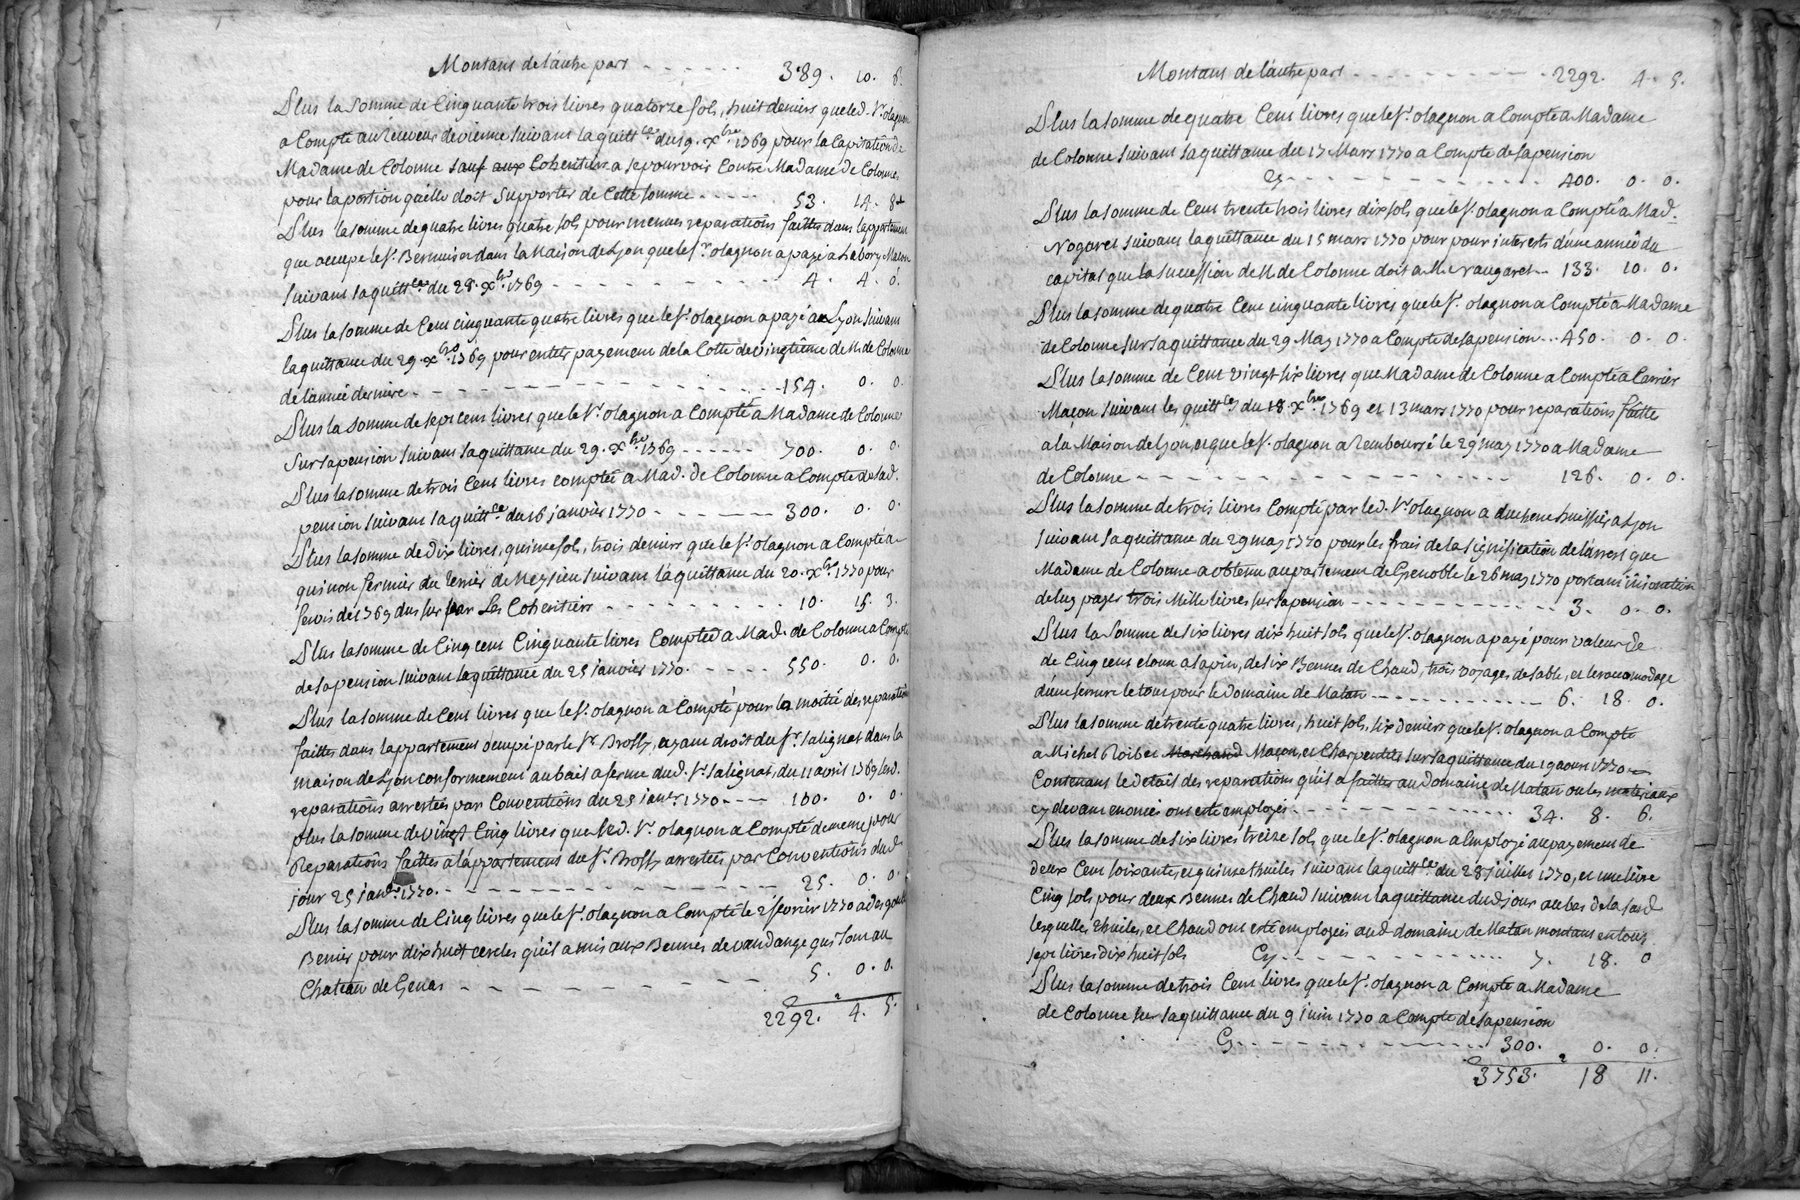 Montant de lautre part - - - - - - 389. 10. 6.
Plus la somme de Cinquante trois livres quatorze sols, huit deniers que led. Sr. olagnon
a Compté au Receveur de vienne suivant la quittce. du 19. xbre. 1769 pour la Capitation de
Madame de Colonne sauf aux Coheritiers a se pourvoir Contre Madame de Colonne
pour la portion quelle doit Supporter de Cette somme - - - - - 53. 14. 8
Plus la somme de quatre livres quatre sols pour menues reparations faittes dans lappartement
que occupe le Sr. Bermison dans la Maison de Lyon que le Sr. olagnon a payé a Labory Macon
suivant sa quittce. du 28. xbre. 1769 - - - - - - - - - 4. 4. 0.
Plus la somme de Cent cinquante quatre livres que le Sr. olagnon a payé a Lyon suivant
la quittance du 29. xbre. 1769 pour entier payement de la Cotte de vingtieme de M. de Colonne
de lannée derniere - - - - - - - - - - - - - - - - 154. 0. 0.
Plus la somme de sept cent livres que le Sr. olagnon a Compté a Madame de Colonne
sur sa pension suivant sa quittance du 29. xbre. 1769 - - - - - - 700. 0. 0.
Plus la somme de trois Cent livres comptée a Mad. de Colonne a Compte de sad.
pension suivant sa quittce. du 16 janvier 1770 - - - - - - 300. 0. 0.
Plus la somme de Dix livres, quinze sols, trois deniers que le Sr. olagnon a Compté a
quinon fermier du Terrier de Meysieu suivant la quittance du 20. xbre. 1770 pour
servis de 1769 dus sur par Les Coheritiers - - - - - - - - 10. 15. 3.
Plus la somme de Cinq cent Cinquante livres Comptée a Mad. de Colonne a Compte
de sa pension suivant la quittance du 25 janvier 1770. - - - - - 550. 0. 0.
Plus la somme de Cent livres que le Sr. olagnon a Compté pour la moitié des reparations
faittes dans lappartement occupé par le Sr. Brossy, ayant droit du Sr. salignat dans la
maison de Lyon conformement au bail a ferme dud. Sr. salignat, du 11 avril 1769 lesd.
reparations arrestées par Conventions du 25 janer. 1770 - - - - 100. 0. 0.
plus la somme de vingt Cinq livres que led. Sr. olagnon a Compté de meme pour
Reparations faittes a lappartement du Sr. Brossy arrestées par Conventions dud.
jour 25 janer. 1770. - - - - - - - - - - - - - - - - - 25. 0. 0.
Plus la somme de Cinq livres que le Sr. olagnon a Compté le 2 fevrier 1770 a
Benier pour dix huit cercles quil a mis aux Bennes de vandange qui sont au
Chateau de Genas - - - - - - - - - - 5. 0. 0.
2292. 4. 5.
Montant de lautre part - - - - - - - - - 2292. 4. 5.
Plus la somme de quatre Cent livres que le Sr. olagnon a Compté a Madame
de Colonne suivant sa quittance du 17 Mars 1770 a Compte de sa pension
Cy - - - - - - - - - - - - 400. 0. 0.
Plus la somme de Cent trente trois livres dix sols que le Sr. olagnon a Compté a Mad.
Nogaret suivant la quittance du 15 mars 1770 pour pour interets dune année du
capital que la succession de M. de Colonne doit a Me. vaugaret - - 133. 10. 0.
Plus la somme de quatre Cent cinquante livres que le Sr. olagnon a Compté a Madame
de Colonne sur sa quittance du 29 May 1770 a Compte de sa pension - - 450. 0. 0.
Plus la somme de Cent vingt six livres que Madame de Colonne a Compté a Carrier
Maçon suivant les quittces du 18. xbre. 1769 et 13 mars 1770 pour reparations faittes
a la Maison de Lyon, et que le Sr. olagnon a Remboursé le 29 may 1770 a Madame
de Colonne - - - - - - - - - - - - - - - - - 126. 0. 0.
Plus la somme de trois livres Compté par led. Sr. olagnon a duchene huissier a Lyon
suivant sa quittance du 29 may 1770 pour les frais de la signification de larrest que
Madame de Colonne a obtenu au parlement de Grenoble le 26 may 1770 portant
de luy payer trois Mille livres sur sa pension - - - - - - - - - - - 3. 0. 0.
Plus la somme de six livres dix huit sols que le Sr. olagnon a payé pour valeur de
de Cinq cent cloux a lapin, de six Bennes de Chaud, trois voyages de sable, et le racomodage
dune serrure le tout pour le Domaine de Matan - - - - - - - - - 6. 18. 0.
Plus la somme de trente quatre livres, huit sols, six deniers que le Sr. olagnon a Compté
a Michel Roibet Marchand Maçon, et Charpentier sur sa quittance du 19 aoust 1770
Contenant le detail des reparations quil a faittes au domaine de Matan ou les materiaux
cy devant enoncés ont eté employés - - - - - - - - - - - - 34. 8. 6.
Plus la somme de six livres treize sols que le Sr. olagnon a Employé au payement de
deux Cent soixante, et quinze thuiles suivant la quittce. du 28 juillet 1770, et une livre
Cinq sols pour deux Bennes de Chaud suivant la quittance dud. jour au bas de la susd.
lesquelles thuiles, et Chaud ont eté employées aud. domaine de Matan montant en tout
sept livres dix huit sols Cy - - - - - - - - - - - - - 7. 18. 0
Plus la somme de trois Cent livres que le Sr. olagnon a Compté a Madame
de Colonne sur sa quittance du 9 juin 1770 a Compte de sa pension
Cy - - - - - - - - - - - - - - - 300. 0. 0.
3753. 18 11.